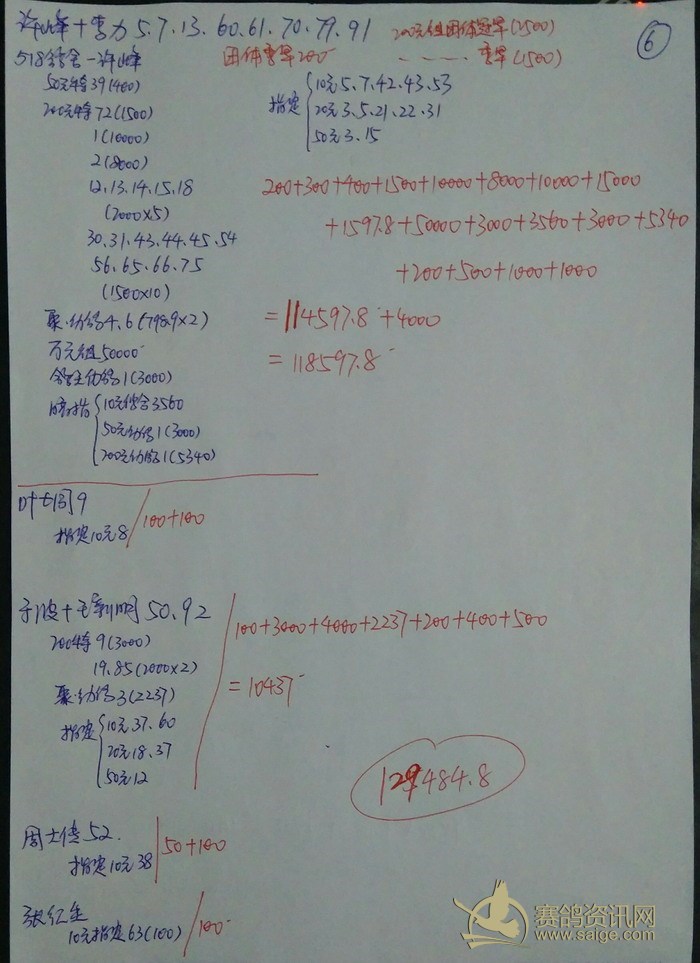 许峰+李力 5.7.13.60.61.70.79.91
200元组团体冠军(2500)
⑥
518鸽舍-许峰
团体季军200
季军(1500)
50元特39(400)
200元特72(1500)
1(10000)
2(8000)
12.13.14.15.18
(2000×5)
30.31.43.44.45.54
56.65.66.75
(1500×10)
指定
10元5.7.42.43.53
20元3.5.21.22.31
50元3.15
200+300+400+1500+10000+8000+10000+15000
+1597.8+50000+3000+3560+3000+5340
+200+500+1000+1000
=114597.8+4000
=118597.8
4.6(798.9×2)
万元组50000
1(3000)
10元 3560
50元 1(3000)
200元 1(5340)
9
指定10元8
100+100
50.92
200特9(3000)
19.85(2000×2)
3(2237)
指定
10元37.60
20元18.37
50元12
100+3000+4000+2237+200+400+500
=10437
129484.8
周士传52.
指定10元38
50+100
张红生
10元指定63(100)
100
赛鸽资讯网
www.saige.com